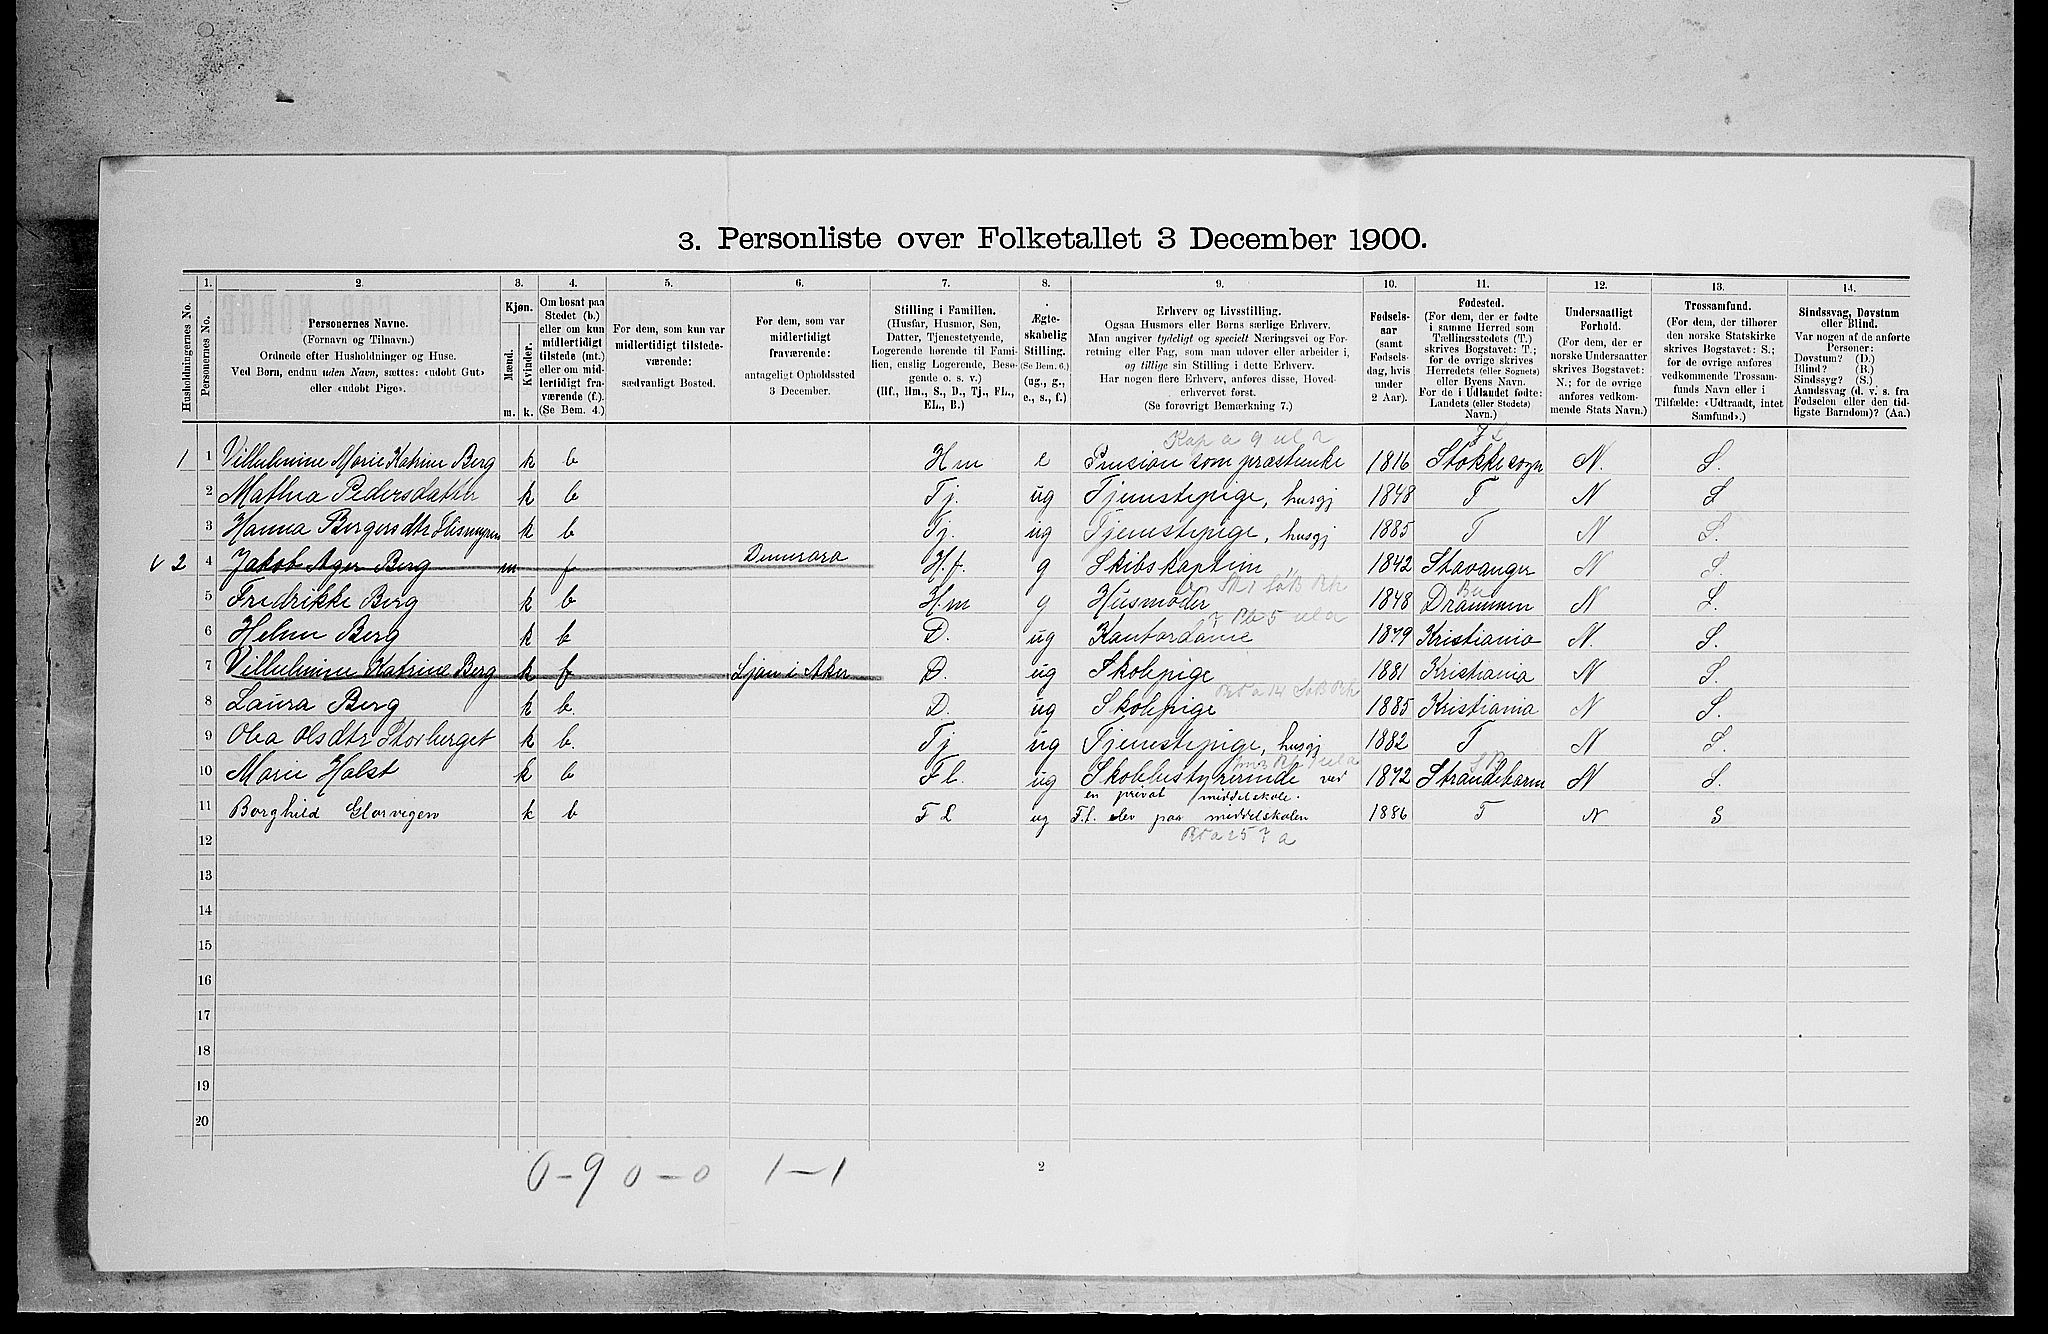 3. Personliste over Folketallet 3 December 1900.
1. 2. 3. 4. 5. 6. 7. 8. 9. 10. 11. 12. 13. 14.
Husholdningernes No.
Personernes No.
Personernes Navne.
(Fornavn og Tilnavn.)
Ordnede efter Husholdninger og Huse.
Ved Børn, endnu uden Navn, sættes: «udøbt Gut»
eller «udøbt Pige».
Kjøn.
Mænd. Kvinder.
m. k.
Om bosat paa
Stedet (b.)
eller om kun
midlertidigt
tilstede (mt.)
eller om mid-
lertidigt fra-
værende (f.).
(Se Bem. 4.)
For dem, som kun var
midlertidigt tilstede-
værende:
sædvanligt Bosted.
For dem, som var
midlertidigt
fraværende:
antageligt Opholdssted
3 December.
Stilling i Familien.
(Husfar, Husmor, Søn,
Datter, Tjenestetyende,
Logerende hørende til Fami-
lien, enslig Logerende, Besø-
gende o. s. v.)
(Hf., Hm., S., D., Tj., FL.,
EL., B.)
Ægte-
skabelig
Stilling.
(Se Bem. 6.)
(ug., g.,
e., s., f.)
Erhverv og Livsstilling.
Ogsaa Husmors eller Børns særlige Erhverv.
Man angiver tydeligt og specielt Næringsvei og For-
retning eller Fag, som man udøver eller arbeider i,
og tillige sin Stilling i dette Erhverv.
Har nogen flere Erhverv, anføres disse, Hoved-
erhvervet først.
(Se forøvrigt Bemærkning 7.)
Fødsels-
aar
(samt
Fødsels-
dag, hvis
under
2 Aar).
Fødested.
(For dem, der er fødte
i samme Herred som
Tællingsstedets (T.)
skrives Bogstavet: T.;
for de øvrige skrives
Herredets (eller Sognets)
eller Byens Navn.
For de i Udlandet fødte:
Landets (eller Stedets)
Navn.)
Undersaatligt
Forhold.
(For dem, der er
norske Undersaatter
skrives Bogstavet:
N.; for de øvrige
anføres vedkom-
mende Stats Navn.)
Trossamfund.
(For dem, der tilhører
den norske Statskirke
skrives Bogstavet: S.;
for de øvrige anføres
vedkommende Trossam-
funds Navn eller i
Tilfælde: «Udtraadt, intet
Samfund».)
Sindssvag, Døvstum
eller Blind.
Var nogen af de anførte
Personer:
Døvstum? (D.)
Blind? (B.)
Sindssyg? (S.)
Aandssvag (d. v. s. fra
Fødselen eller den tid-
ligste Barndom)? (Aa.)
1 1 Villhelmine Marie Katrine Berg k b Hm e Pension som præstenke 1816 Stokke sogn N. S.
2 Mathea Pedersdatter k b Tj. ug Tjenestepige, husgj 1848 T N S
3 Hanna Bergersdtr k b Tj. ug Tjenestepige, husgj 1885 T N S.
v 2 4 Jakob Ager Berg m f Demerara H.f. g Skibskaptein 1842 Stavanger N S.
5 Fredrikke Berg k b H.m g Husmoder 1848 Drammen N S.
6 Helene Berg k b D. ug Kontordame 1879 Kristiania N. S.
7 Villhelmine Katrine Berg k f Ljan i Aker D. ug Skolepige 1881 Kristiania N S.
8 Laura Berg k b. D. ug Skolepige 1885 Kristiania N S.
9 Olea Olsdtr Storberget k b. Tj ug Tjenestepige, husgj 1882 T N S.
10 Marie Holst k b F l. ug Skolebestyrerinde ved 1872 Strandebarm N S.
en privat middelskole.
11 Borghild Glorvigen k b F L ug F.l. elev paa middelskolen 1886 T N S
12
13
14
15
16
17
18
19
20
0-9 0-0 1-1
2